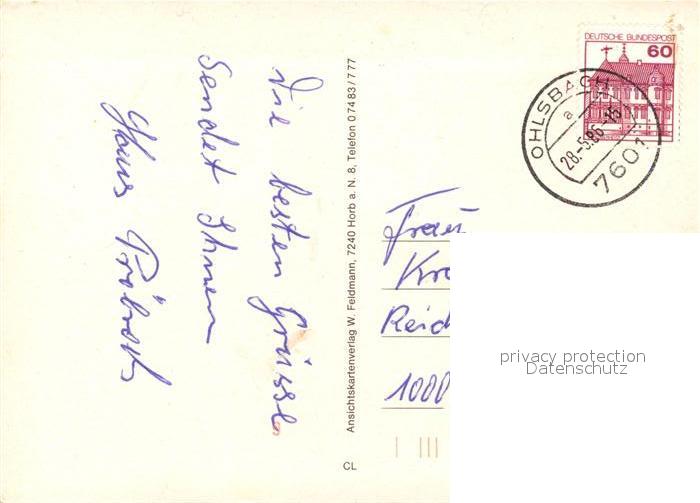 Die besten Grüsse
sendet Ihnen
Hans
Ansichtskartenverlag W. Feldmann, 7240 Horb a. N. 8, Telefon 0 74 83 / 7 77
CL
DEUTSCHE BUNDESPOST
60
OHLSBACH
a
28.-5.86.-16
7601
Frau
Kr
Reich
1000
privacy protection
Datenschutz